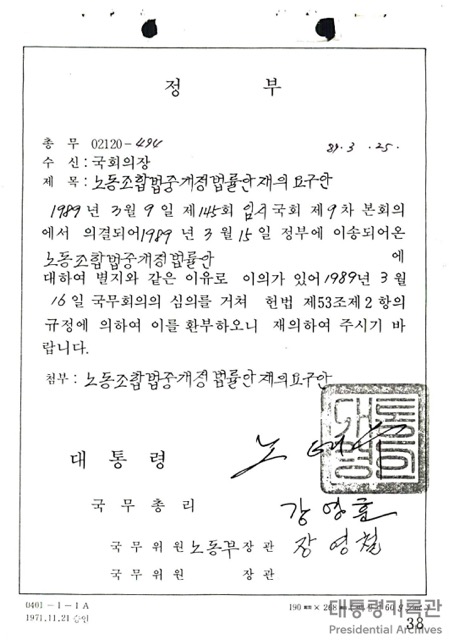 정 부
총 무 02120-494 89. 3. 25.
수 신 : 국회의장
제 목 : 노동조합법중개정법률안재의요구안
1989년 3월 9일 제145회 임시국회 제9차 본회의
에서 의결되어 1989년 3월 15일 정부에 이송되어온
노동조합법중개정법률안 에
대하여 별지와 같은 이유로 이의가 있어 1989년 3월
16일 국무회의의 심의를 거쳐 헌법 제53조제2항의
규정에 의하여 이를 환부하오니 재의하여 주시기 바
랍니다.
첨부 : 노동조합법중개정법률안재의요구안
대통령의인
대 통 령 노태우
국 무 총 리 강영훈
국 무 위 원 노동부 장 관 장영철
국 무 위 원 장 관
0401-1-1A 190㎜×268㎜
1971.11.21 승인
38
대통령기록관
Presidential Archives